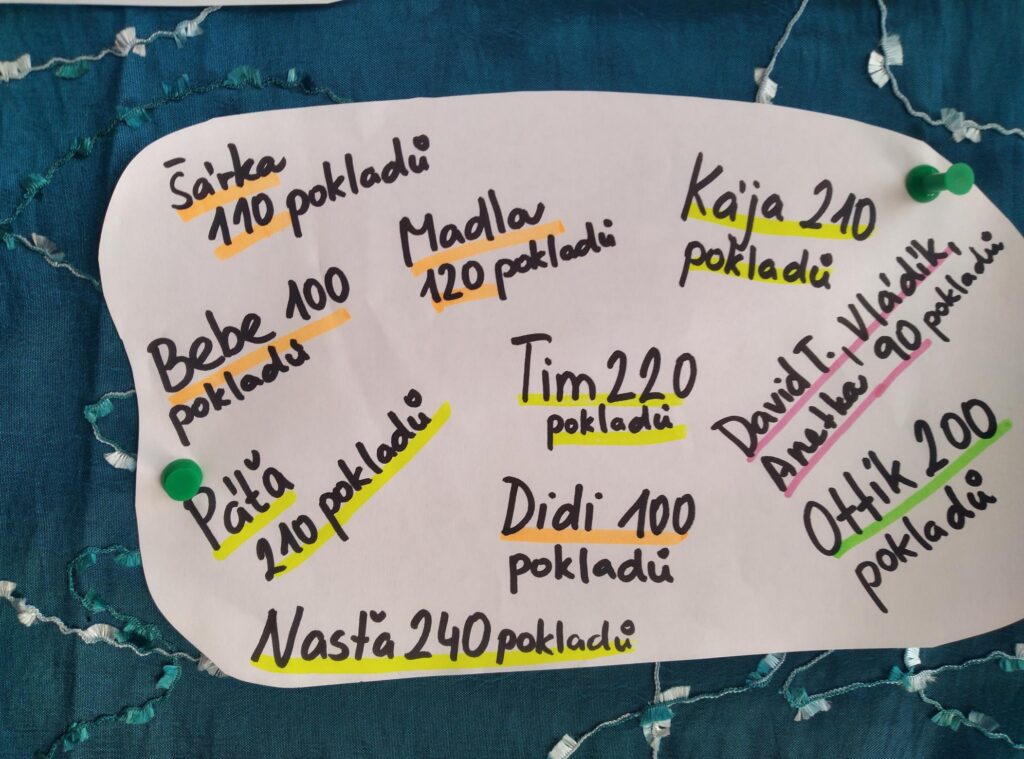 Šárka
110 pokladů
Madla
120 pokladů
Kája 210
pokladů
Bebe 100
pokladů
Tim 220
pokladů
David T., Vládík,
Anetka 90 pokladů
Páťa
210 pokladů
Didi 100
pokladů
Ottík 200
pokladů
Nasťa 240 pokladů